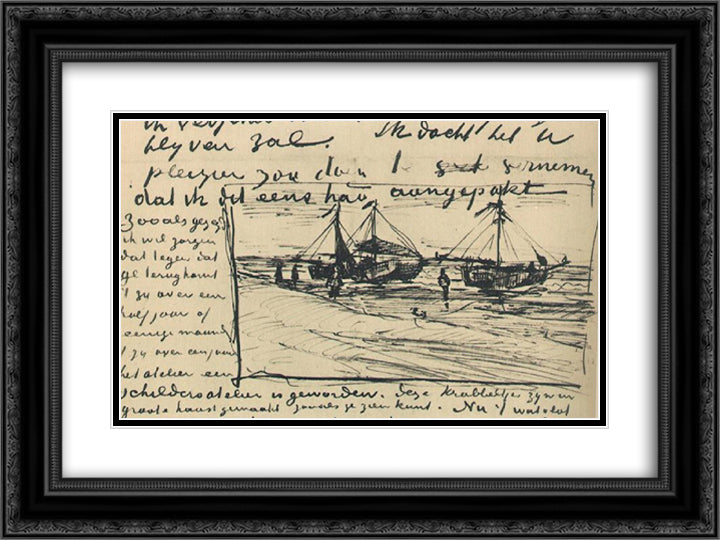 blyven zal. Ik dacht het U
plezier zou doen 't vernemen
dat ik dit eens had aangepakt
Zooals gezegd
ik wil zorgen
dat tegen dat
ge terugkomt
't zij over een
half jaar of
eenige maand
't zij over een jaar
het atelier een
schildersatelier is geworden. Deze krabbeltjes zyn in
groote haast gemaakt zooals ge zien kunt. Nu 't